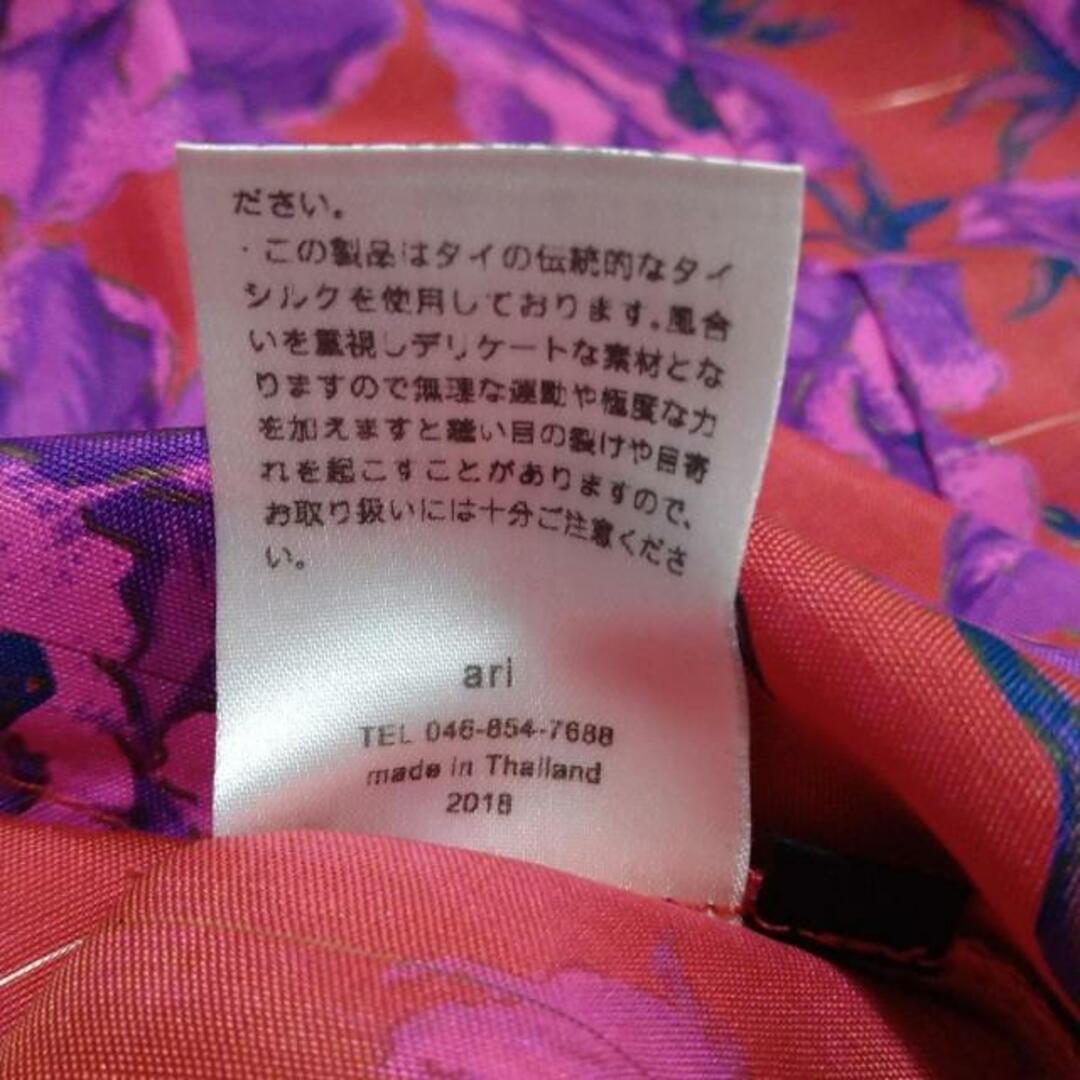 ださい。
・この製品はタイの伝統的なタイ
シルクを使用しております。風合
いを重視しデリケートな素材とな
りますので無理な運動や極度な力
を加えますと縫い目の裂けや目寄
れを起こすことがありますので、
お取り扱いには十分ご注意くださ
い。
ari
TEL 046-854-7688
made in Thailand
2018